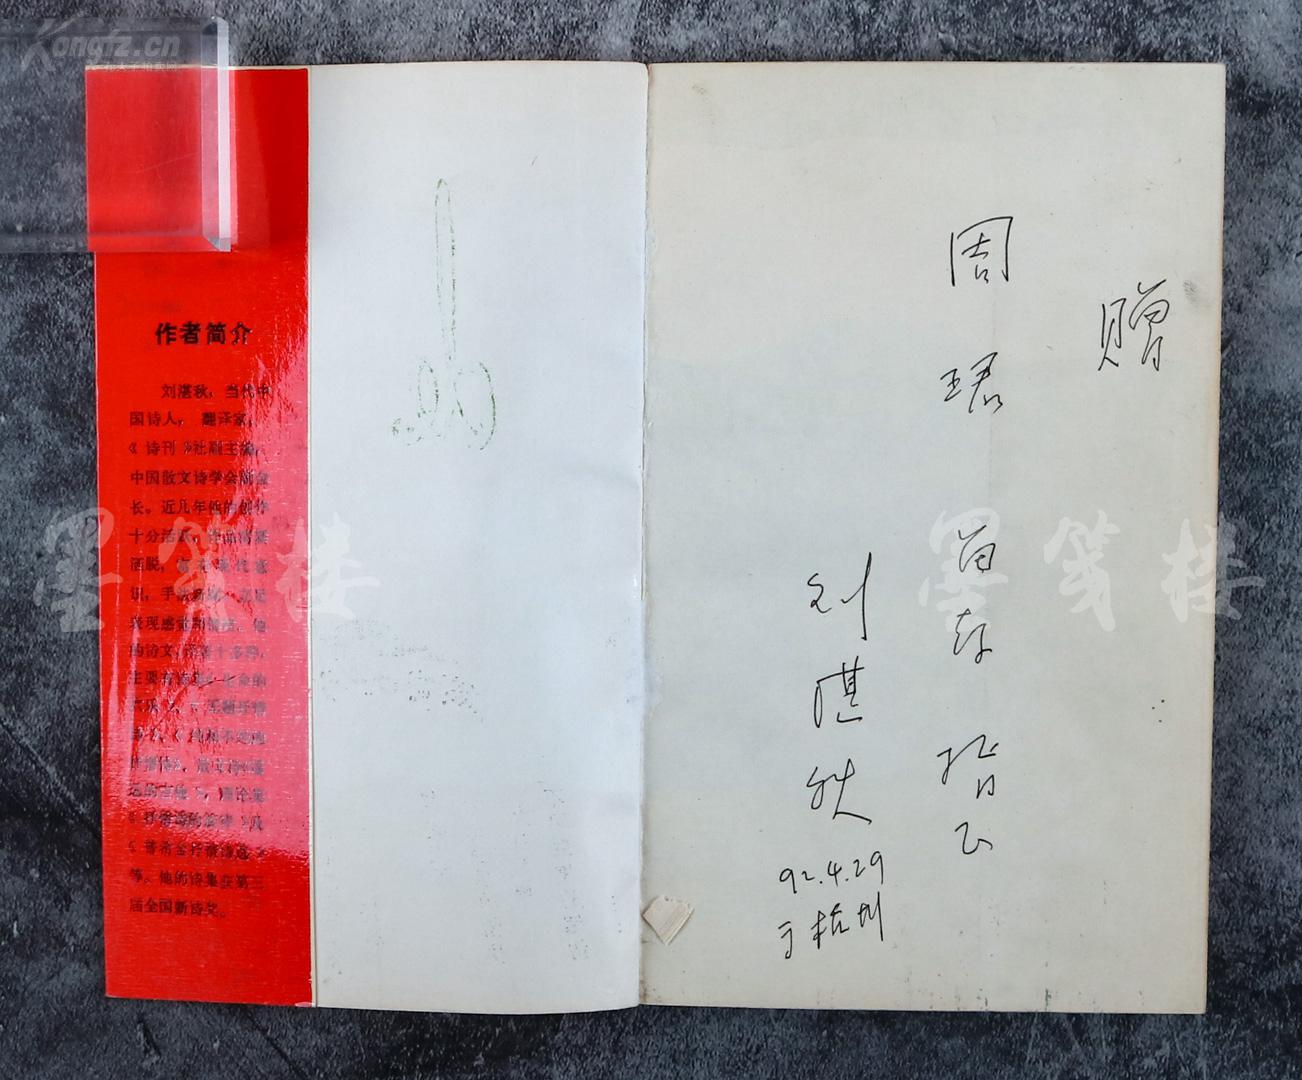 Kongfz.cn
作者简介
刘湛秋，当代中
国诗人，翻译家，
《诗刊》社副主编，
中国散文诗学会副会
长。近几年他的创作
十分活跃，作品清新
洒脱，富有现代意
识，手法新颖，立足
表现感觉和情绪。他
的诗文，译著十多种，
主要有诗集《生命的
欢乐》、《无题抒情
等。他的诗集获第三
届全国新诗奖。
赠
周珺 留存 指正
刘湛秋
92.4.29
于杭州
墨笺楼
墨笺楼